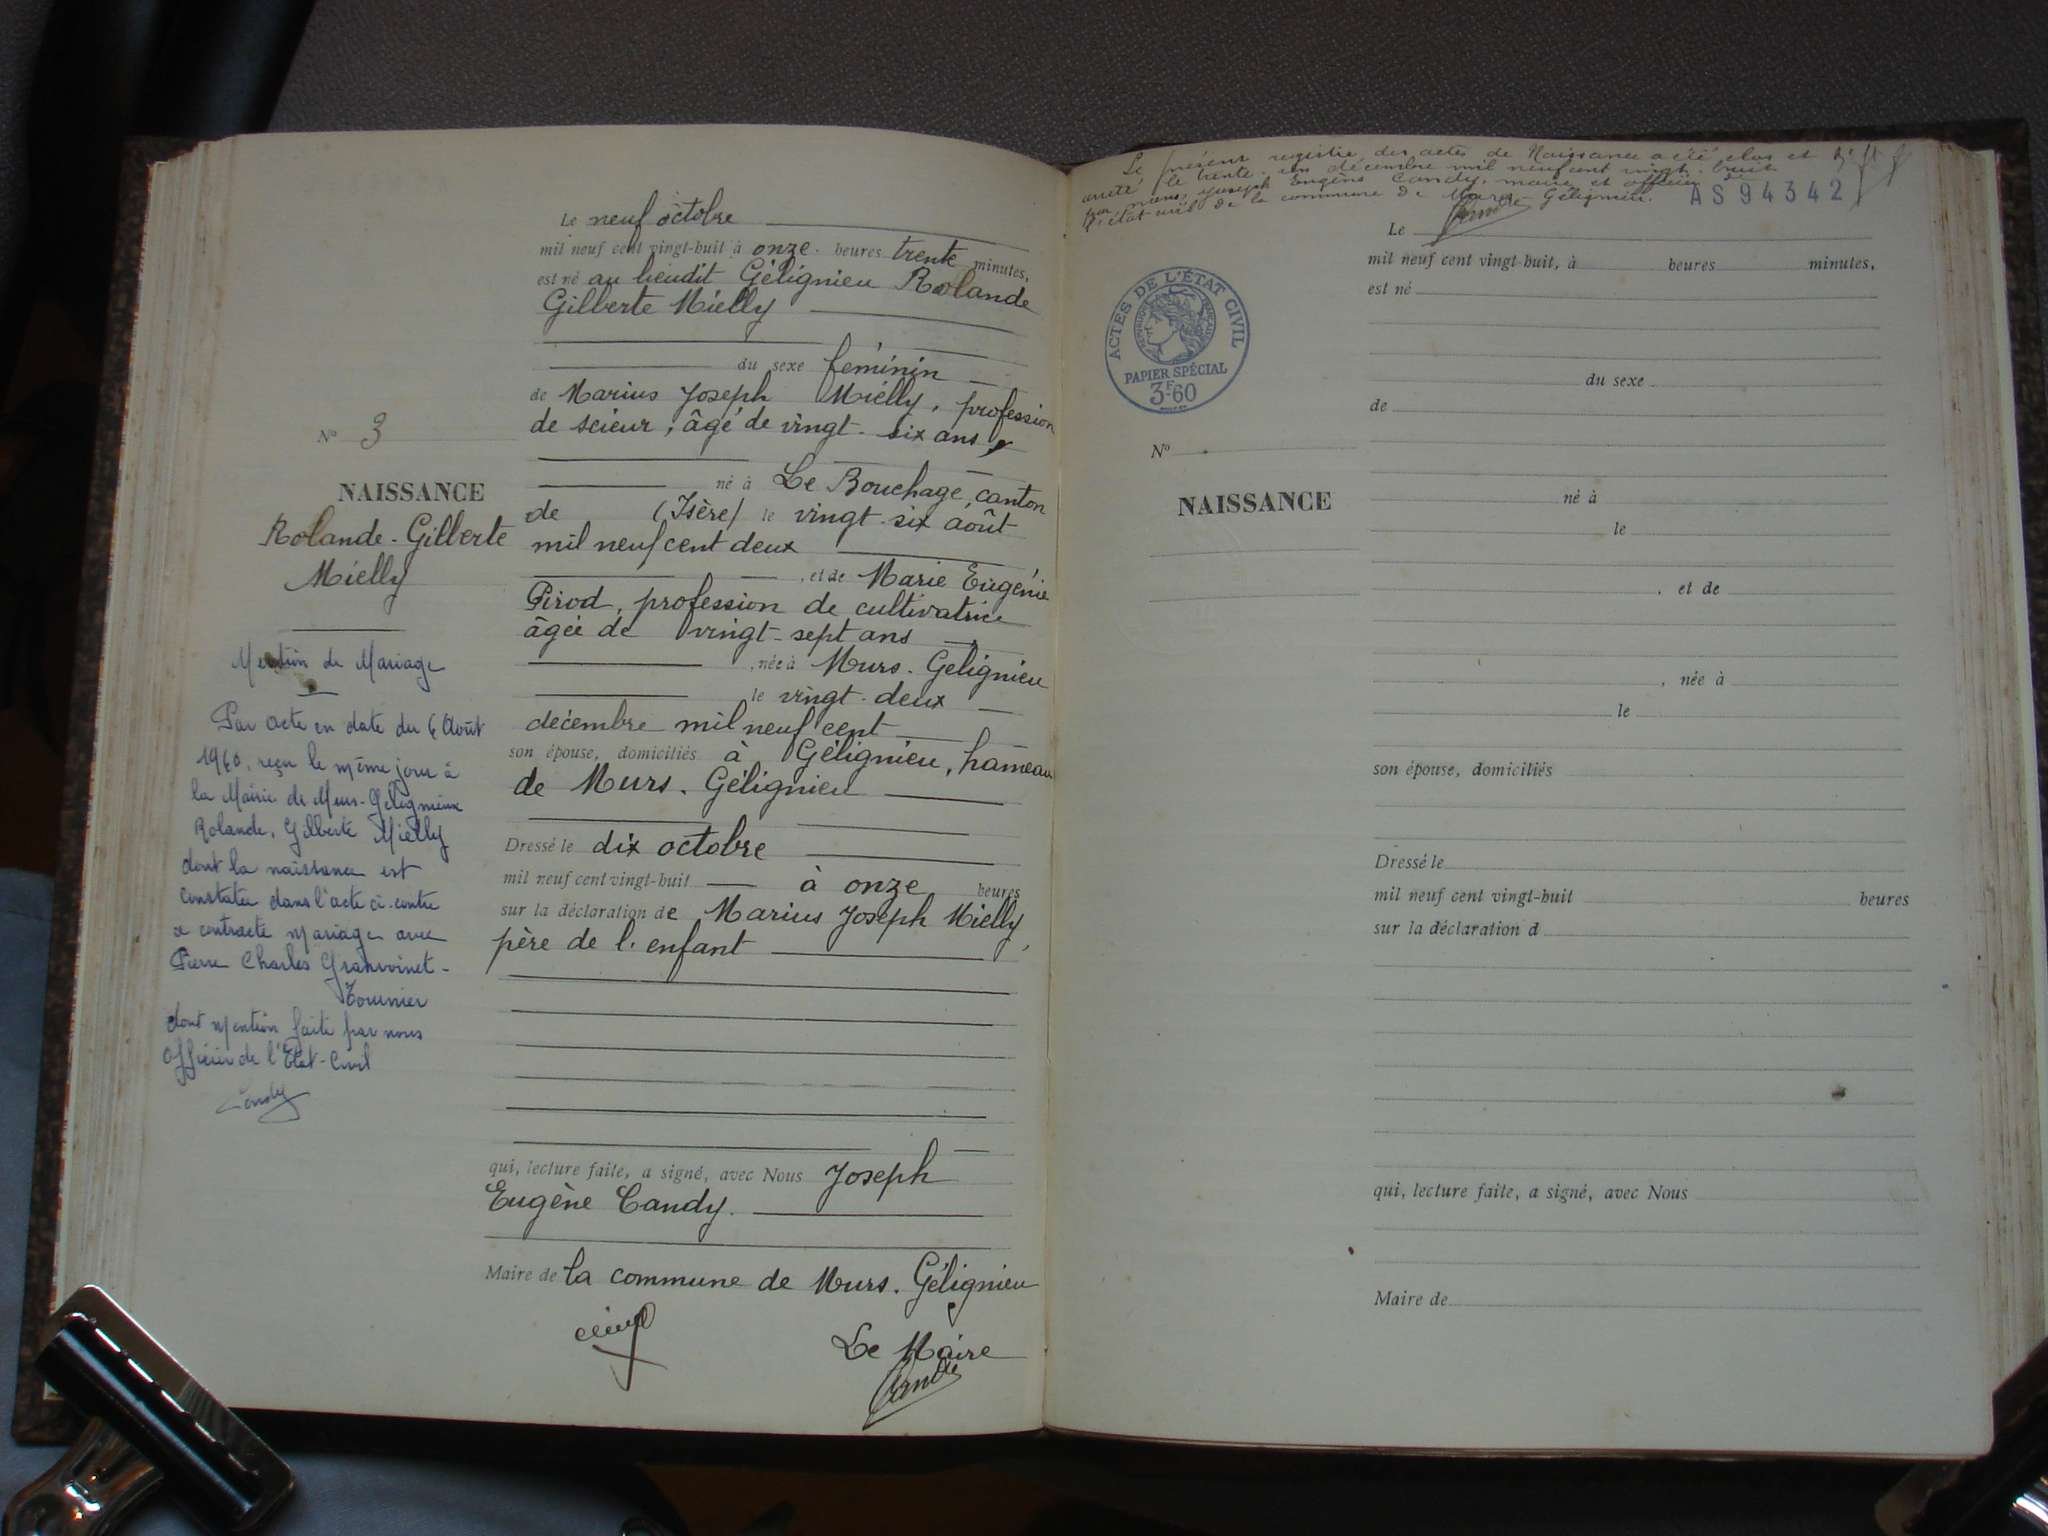 Le neuf octobre
mil neuf cent vingt-huit à onze heures trente minutes,
est né au lieudit Gélignieu Rolande
Gilberte Mielly
du sexe féminin
de Marius Joseph Mielly, profession
de scieur, âgé de vingt-six ans,
né à Le Bouchage, canton
de (Isère) le vingt-six août
mil neuf cent deux
, et de Marie Eugénie
Pirod, profession de cultivatrice
âgée de vingt-sept ans
, née à Murs-Gélignieu
le vingt-deux
décembre mil neuf cent
son épouse, domiciliés à Gélignieu, hameau
de Murs-Gélignieu
Dressé le dix octobre
mil neuf cent vingt-huit à onze heures
sur la déclaration de Marius Joseph Mielly,
père de l'enfant
qui, lecture faite, a signé, avec Nous Joseph
Eugène Candy.
Maire de la commune de Murs-Gélignieu
Le Maire
N° 3
NAISSANCE
Rolande-Gilberte
Mielly
Mention de Mariage
Par acte en date du 6 Août
1960, reçu le même jour à
la Mairie de Murs-Gélignieux
Rolande, Gilberte Mielly
dont la naissance est
constatée dans l'acte ci-contre
a contracté mariage avec
Pierre Charles
Tournier
dont mention faite par nous
Officier de l'Etat-Civil
Candy
Le présent registre des actes de Naissance a été clos et
arrêté le trente-un décembre mil neuf cent vingt-huit
par nous, Joseph Eugène Candy, maire et officier de
l'état civil de la commune de Murs-Gélignieu.
AS94342
ACTES DE L'ÉTAT CIVIL
RÉPUBLIQUE FRANÇAISE
PAPIER SPÉCIAL
3F60
Le
mil neuf cent vingt-huit, à heures minutes,
est né
du sexe
de
N°
NAISSANCE
né à
le
, et de
, née à
le
son épouse, domiciliés
Dressé le
mil neuf cent vingt-huit heures
sur la déclaration d
qui, lecture faite, a signé, avec Nous
Maire de